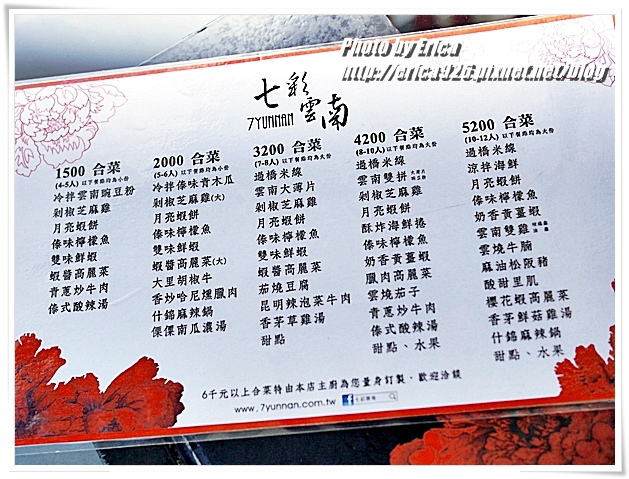 Photo by Erica
http://erica926.pixnet.net/blog
七彩雲南
7YUNNAN
1500 合菜
(4-5人) 以下餐點均為小份
冷拌雲南豌豆粉
剁椒芝麻雞
月亮蝦餅
傣味檸檬魚
雙味鮮蝦
蝦醬高麗菜
青蔥炒牛肉
傣式酸辣湯
2000 合菜
(5-6人) 以下餐點均為小份
冷拌傣味青木瓜
剁椒芝麻雞(大)
月亮蝦餅
傣味檸檬魚
雙味鮮蝦
蝦醬高麗菜(大)
大里胡椒牛
香炒哈尼燻臘肉
什錦麻辣鍋
傈僳南瓜濃湯
3200 合菜
(7-8人) 以下餐點均為大份
過橋米線
雲南大薄片
剁椒芝麻雞
月亮蝦餅
傣味檸檬魚
雙味鮮蝦
蝦醬高麗菜
茄燒豆腐
昆明辣泡菜牛肉
香茅草雞湯
甜點
4200 合菜
(8-10人) 以下餐點均為大份
過橋米線
雲南雙拼
剁椒芝麻雞
月亮蝦餅
酥炸海鮮捲
傣味檸檬魚
奶香黃薑蝦
臘肉高麗菜
雲燒茄子
青蔥炒牛肉
傣式酸辣湯
甜點、水果
5200 合菜
(10-12人) 以下餐點均為大份
過橋米線
涼拌海鮮
月亮蝦餅
傣味檸檬魚
奶香黃薑蝦
雲南雙雞
雲燒牛腩
麻油松阪豬
酸甜里肌
櫻花蝦高麗菜
香茅鮮菇雞湯
什錦麻辣鍋
甜點、水果
6千元以上合菜特由本店主廚為您量身訂製，歡迎洽談
www.7yunnan.com.tw